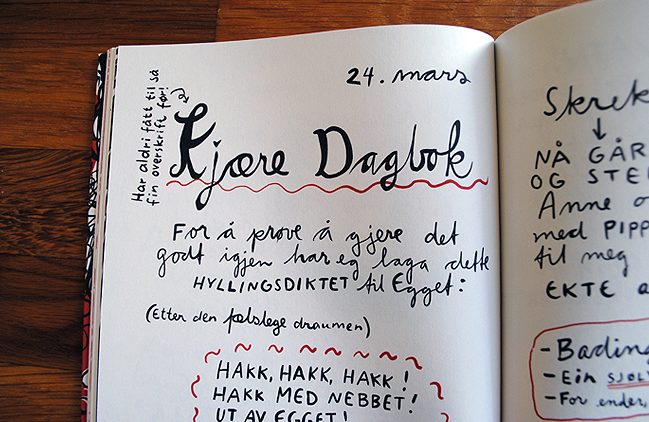 24. mars
Har aldri fått til så
fin overskrift før!
Kjære Dagbok
For å prøve å gjere det
godt igjen har eg laga dette
HYLLINGSDIKTET til Egget:
(Etter den fælslege draumen)
HAKK, HAKK, HAKK!
HAKK MED NEBBET!
UT AV EGGET!
Skrek
NÅ GÅR
OG STE
Anne o
med PIPP
til meg
EKTE
- Bading
- Ein SJØL
- For ender,